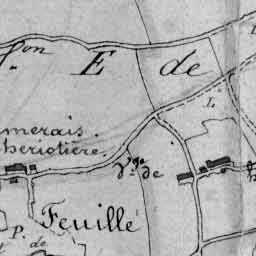 on
E de
L
merais.
heriotière
de
Feuillé
P. de